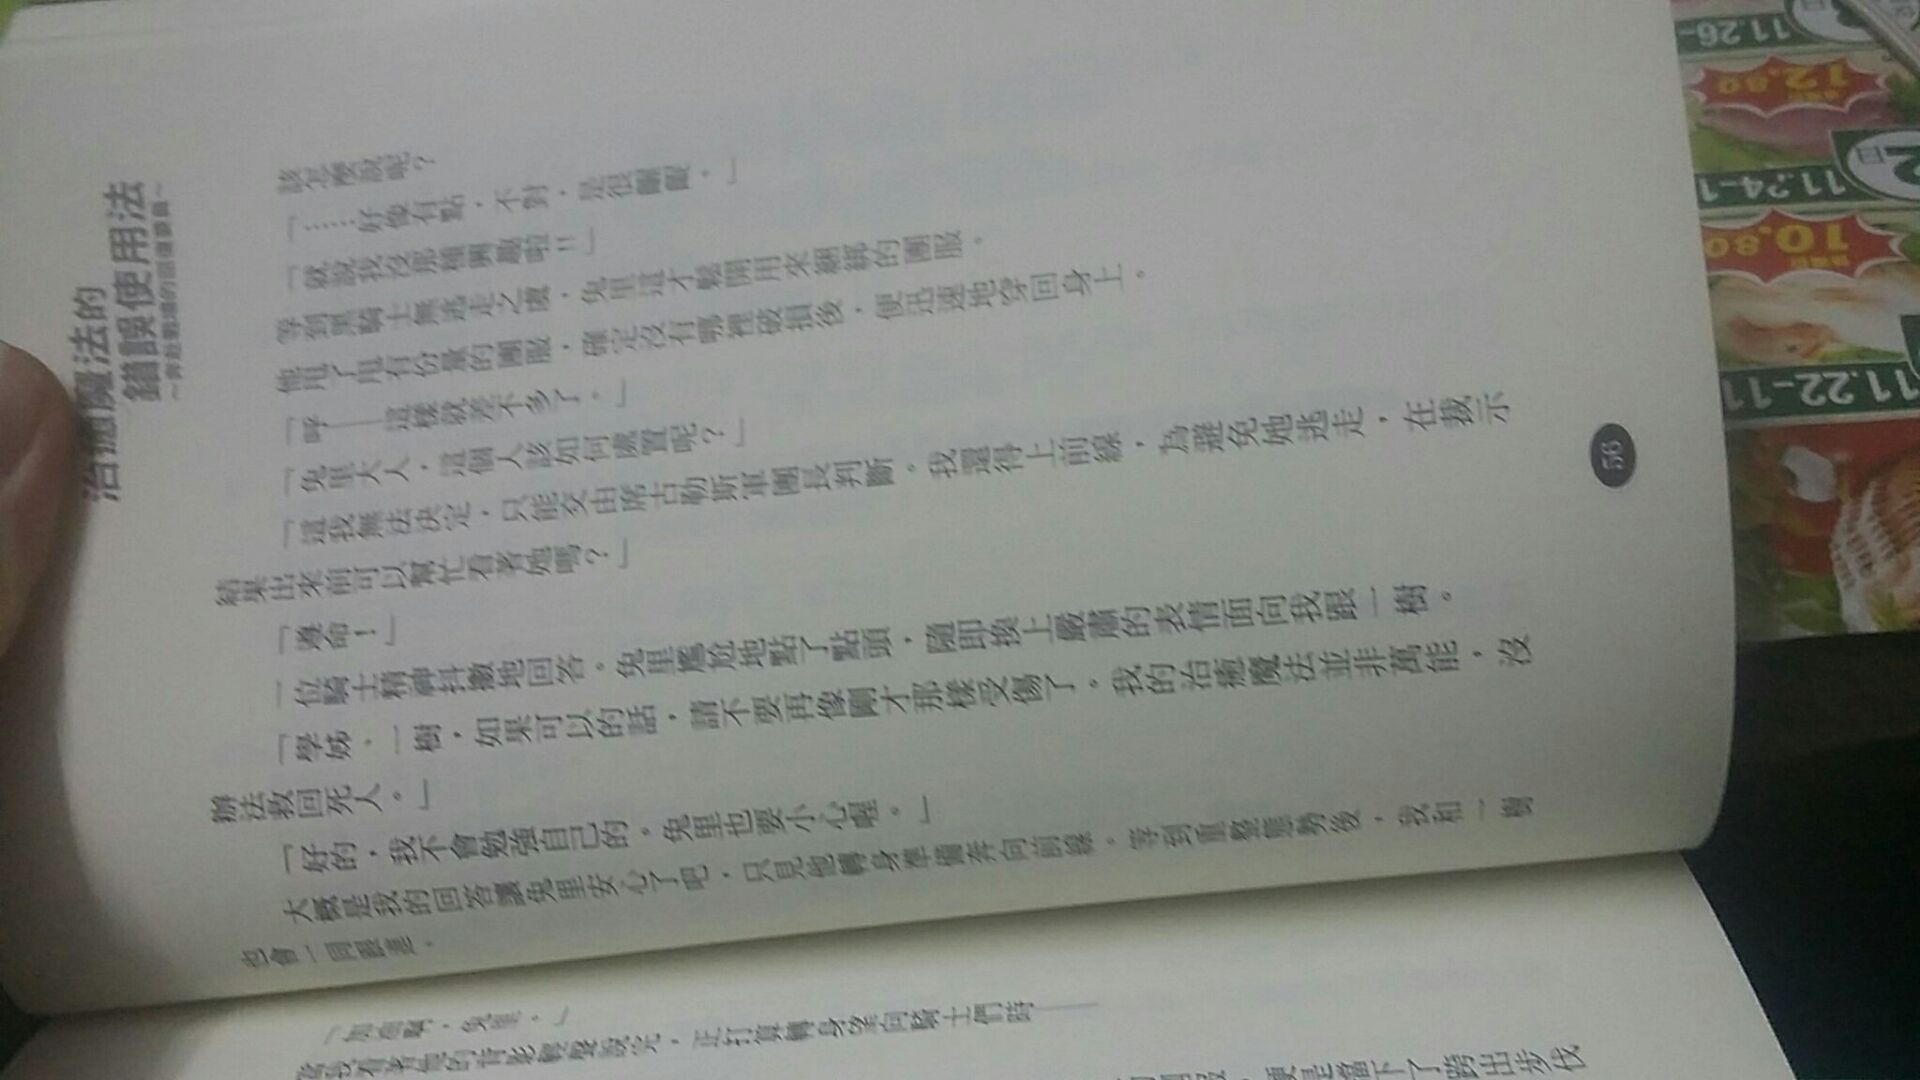 治癒魔法的
錯誤使用法
～奔赴戰場的回復要員～
該怎麼說呢？
「……好像有點，不對，是很關獸。」
「就說我沒那種興趣啦！！」
等到黑騎士無逃走之虞，兔里這才鬆開用來綑綁的團服。
他甩了甩有份量的團服，確定沒有哪裡破損後，便迅速地穿回身上。
「呼——這樣就差不多了。」
「兔里大人，這個人該如何處置呢？」
「這我無法決定，只能交由席古勒斯軍團長判斷。我還得上前線，為避免她逃走，在裁示
結果出來前可以幫忙看著她嗎？」
「遵命！」
一位騎士精神抖擻地回答。兔里尷尬地點了點頭，隨即換上嚴肅的表情面向我跟一樹。
「學姊、一樹，如果可以的話，請不要再像剛才那樣受傷了。我的治癒魔法並非萬能，沒
辦法救回死人。」
「好的，我不會勉強自己的。兔里也要小心喔。」
大概是我的回答讓兔里安心了吧，只見他轉身準備奔向前線。等到重整態勢後，我和一樹
也會一同跟進。
56
「加油啊，兔里。」
當我看著他的背影輕聲說完，正打算轉身望向騎士們時——
便是留下了踏出步伐
11.26-
12.80
11.24-1
10.80
11.22-11